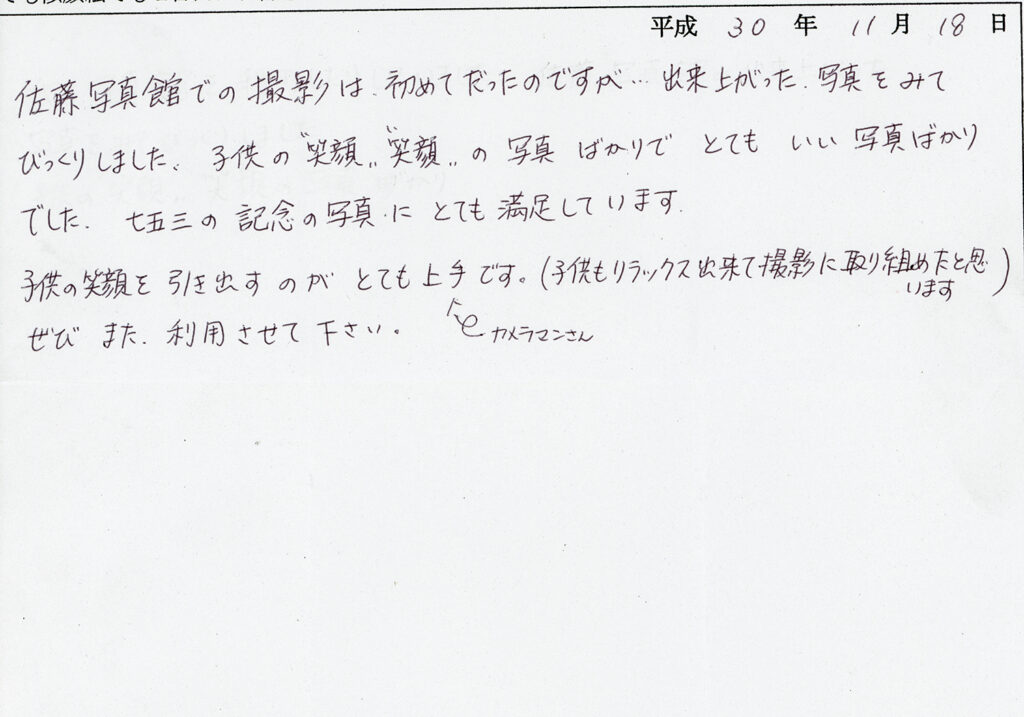 平成 30 年 11 月 18 日
佐藤写真館での撮影は、初めてだったのですが… 出来上がった、写真をみて
びっくりしました、子供の “笑顔„ “笑顔„ の 写真 ばかりで とても いい 写真ばかり
でした、七五三の 記念の写真に とても 満足しています。
子供の笑顔を 引き出す のが とても上手です。(子供もリラックス出来て撮影に取り組めたと思
います)
ぜひ また、利用させて下さい。
カメラマンさん